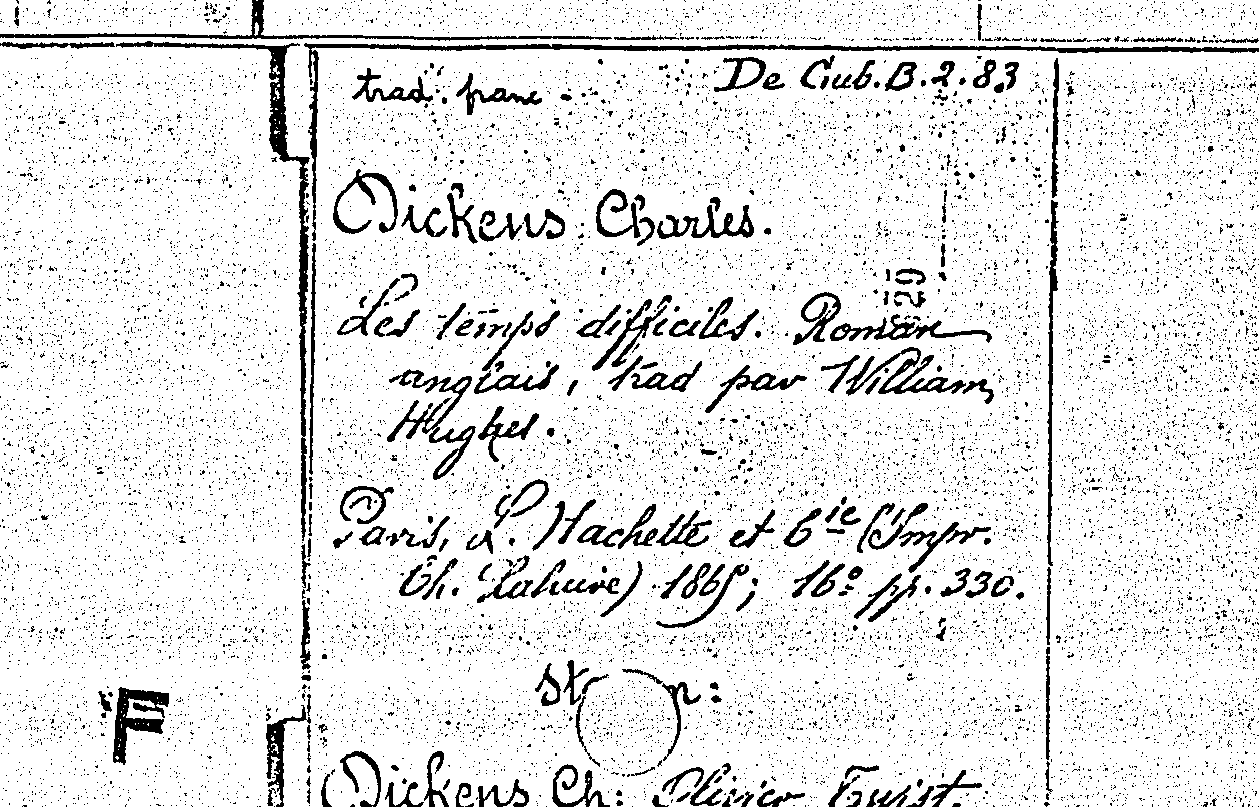 trad. franc.
De Gub. B. 2. 83
Dickens Charles.
Les temps difficiles. Roman
anglais, trad par William
Hughes.
Paris, L. Hachette et Cie (Impr.
Ch. Lahure) 1865; 16º pp. 330.
F
Dickens Ch: Olivier Twist.